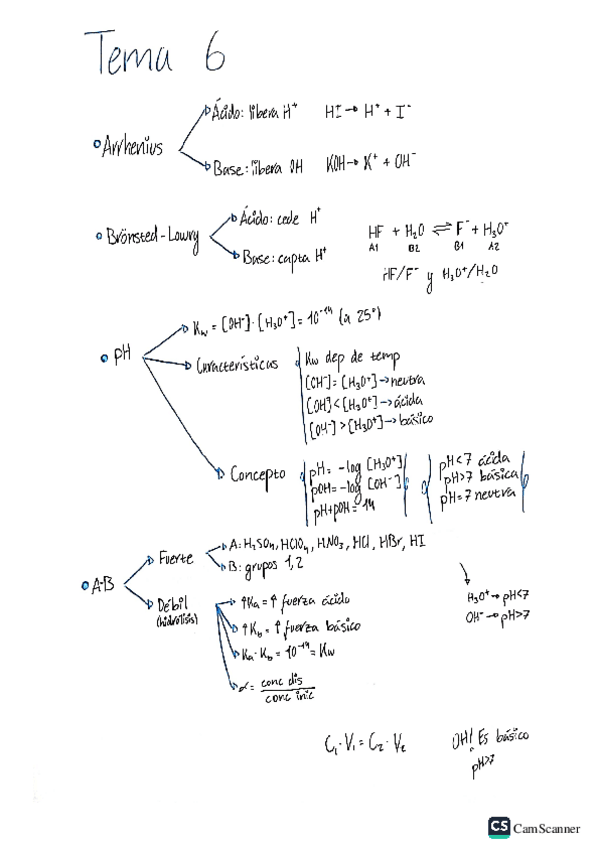 Tema 6
Arrhenius
Ácido: libera H⁺ HI → H⁺ + I⁻
Base: libera OH KOH → K⁺ + OH⁻
Brönsted-Lowry
Ácido: cede H⁺
Base: capta H⁺
HF + H₂O ⇌ F⁻ + H₃O⁺
A1 B2 B1 A2
HF/F⁻ y H₃O⁺/H₂O
pH
Kw = [OH⁻]·[H₃O⁺] = 10⁻¹⁴ (a 25°)
Características
Kw dep de temp
[OH⁻] = [H₃O⁺] → neutra
[OH] < [H₃O⁺] → ácida
[OH⁻] > [H₃O⁺] → básico
Concepto
pH = -log [H₃O⁺]
pOH = -log [OH⁻]
pH + pOH = 14
pH<7 ácida
pH>7 básica
pH=7 neutra
A-B
Fuerte
A: H₂SO₄, HClO₄, HNO₃, HCl, HBr, HI
B: grupos 1, 2
Débil
(hidrólisis)
↑Ka = ↑ fuerza ácido
↑Kb = ↑ fuerza básico
Ka · Kb = 10⁻¹⁴ = Kw
α = conc dis
conc inic
H₃O⁺ → pH<7
OH⁻ → pH>7
C₁·V₁ = C₂·V₂
OH! Es básico
pH>7
CS CamScanner